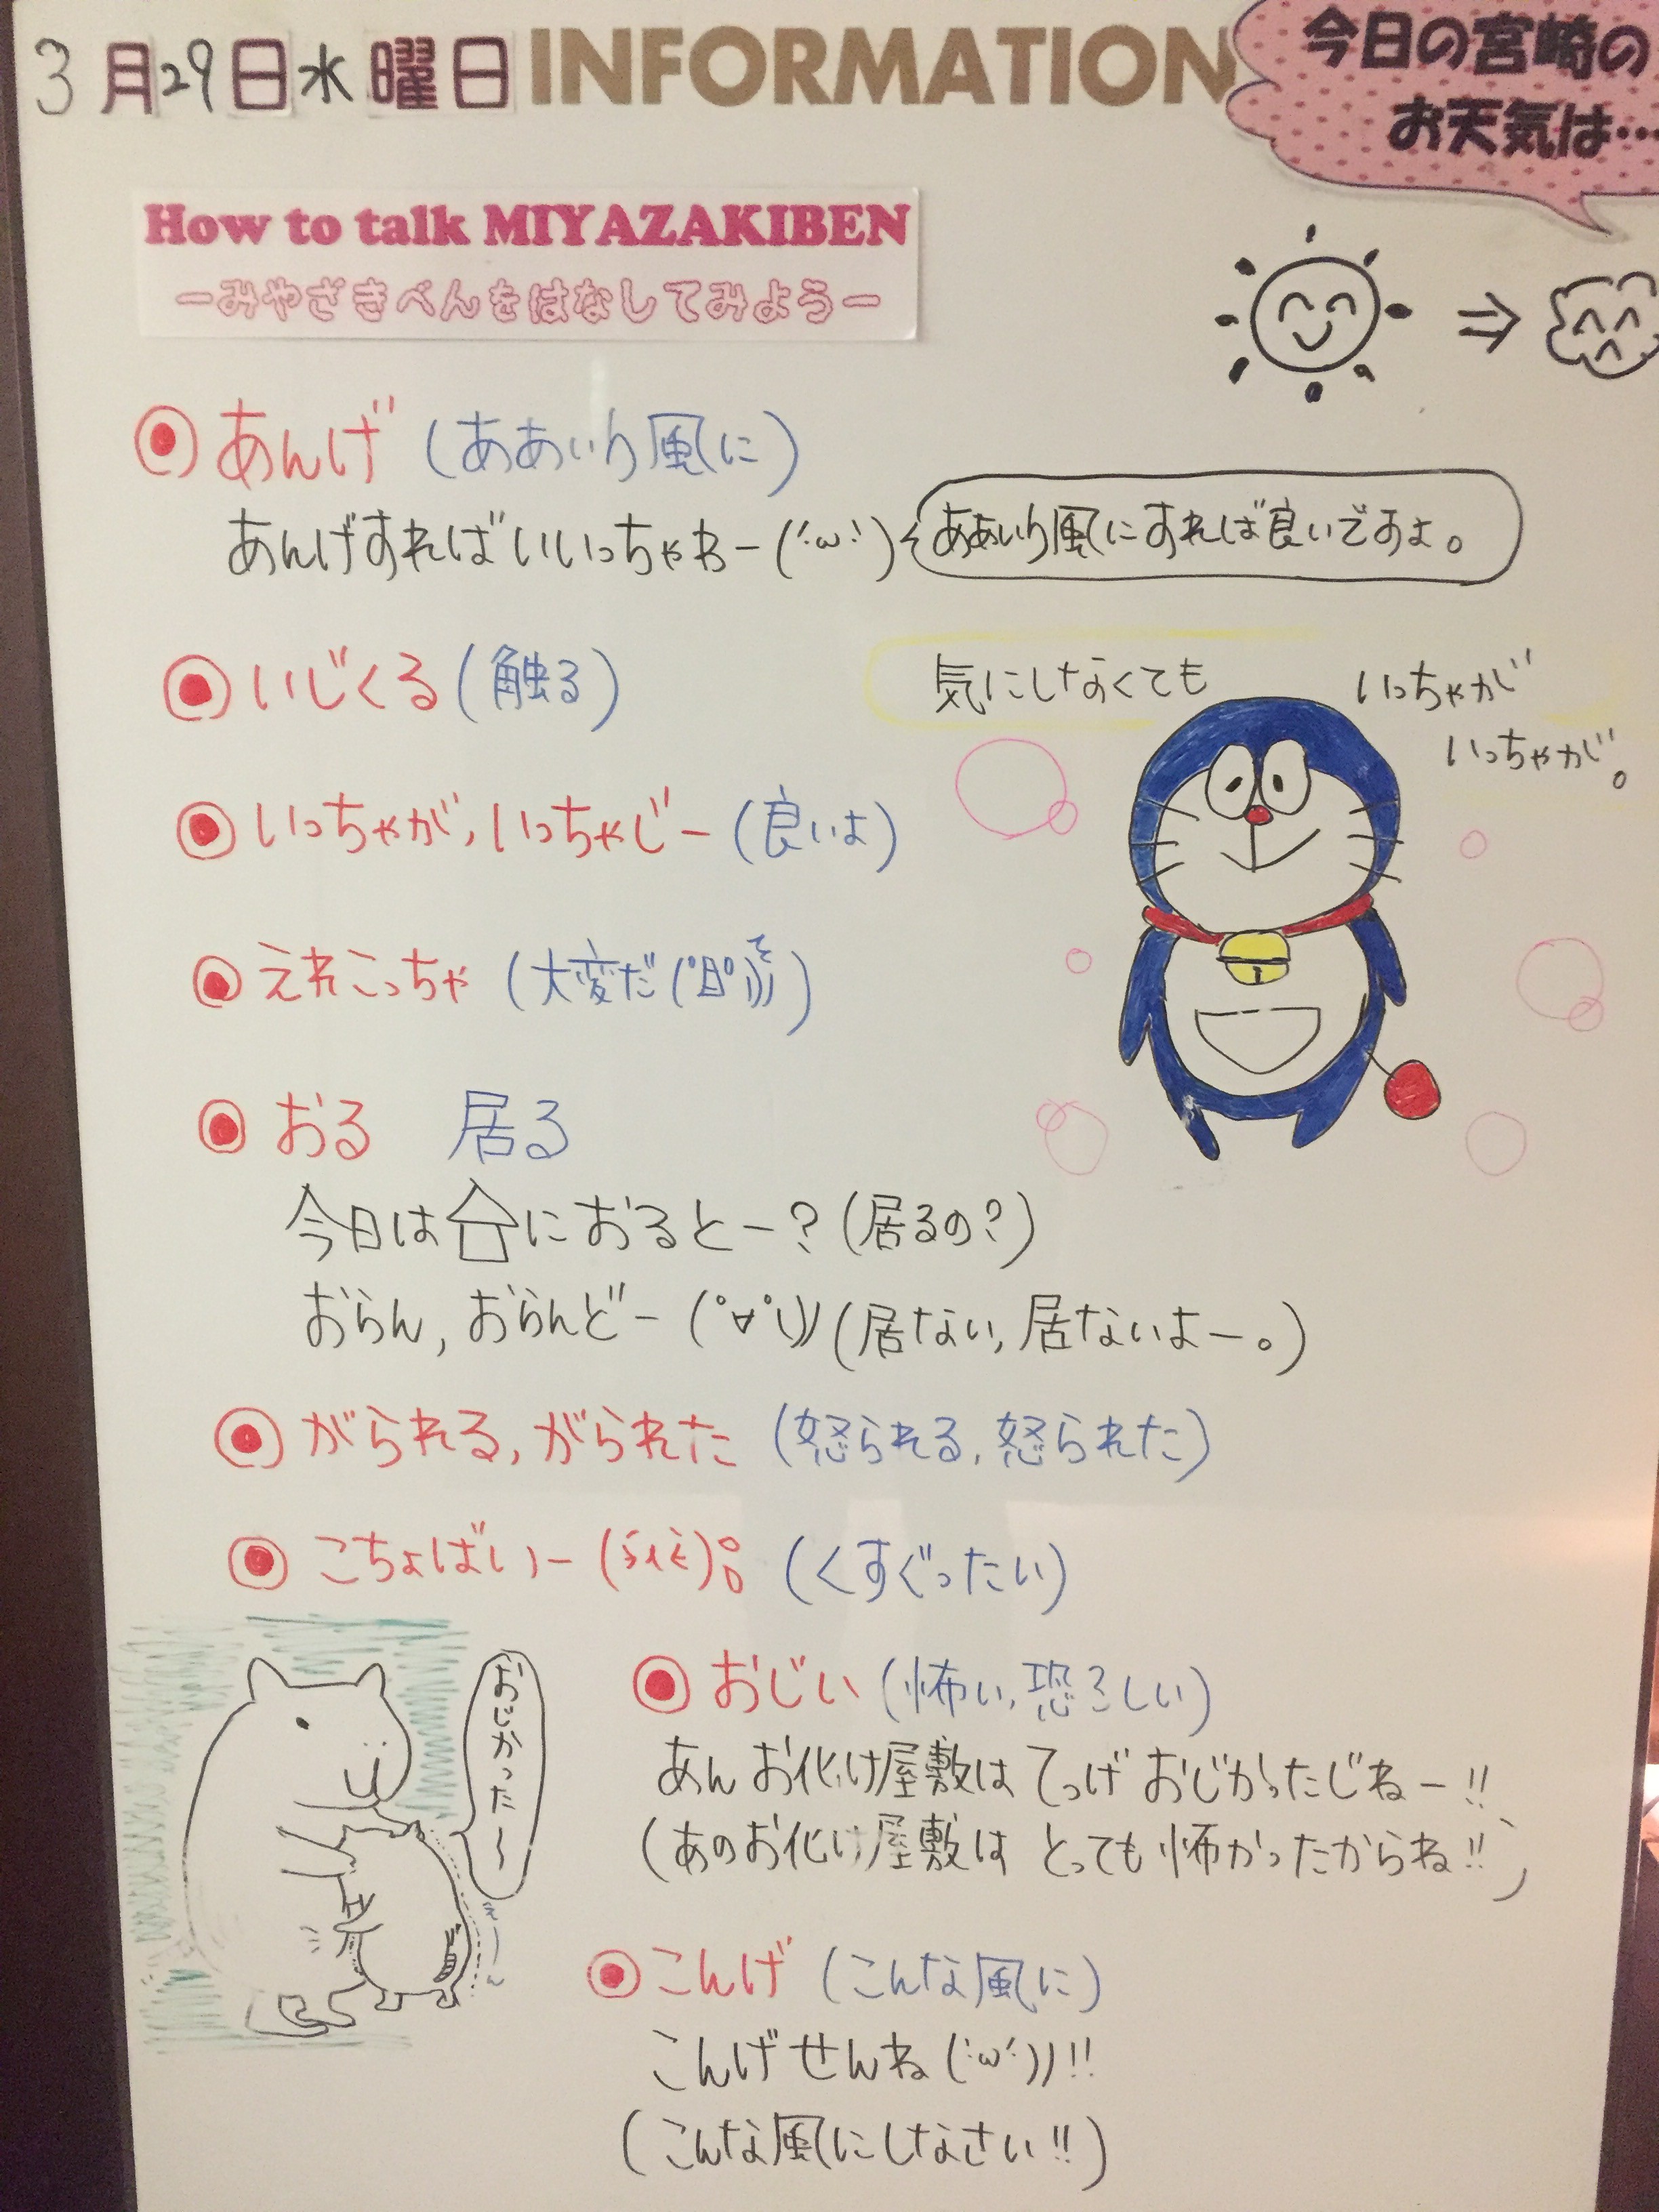 3月29日水曜日 INFORMATION
今日の宮崎の
お天気は…
How to talk MIYAZAKIBEN
ーみやざきべんをはなしてみようー
あんげ (ああいう風に)
あんげすればいいっちゃねー(´・ω・`) ああいう風にすれば良いですよ。
いじくる (触る)
気にしなくても
いっちゃが
いっちゃが。
いっちゃが, いっちゃじー (良いよ)
えれこっちゃ (大変だ
おる 居る
今日は
におるとー? (居るの?)
おらん, おらんどー (居ない, 居ないよー。)
がられる, がられた (怒られる, 怒られた)
こちょばいー (くすぐったい)
おじかった〜
えーん
おじい (怖い, 恐ろしい)
あんお化け屋敷は てっげ おじかったじねー!!
(あのお化け屋敷は とっても 怖かったからね!!)
こんげ (こんな風に)
こんげせんね(´・ω・`))!!
(こんな風にしなさい!!)